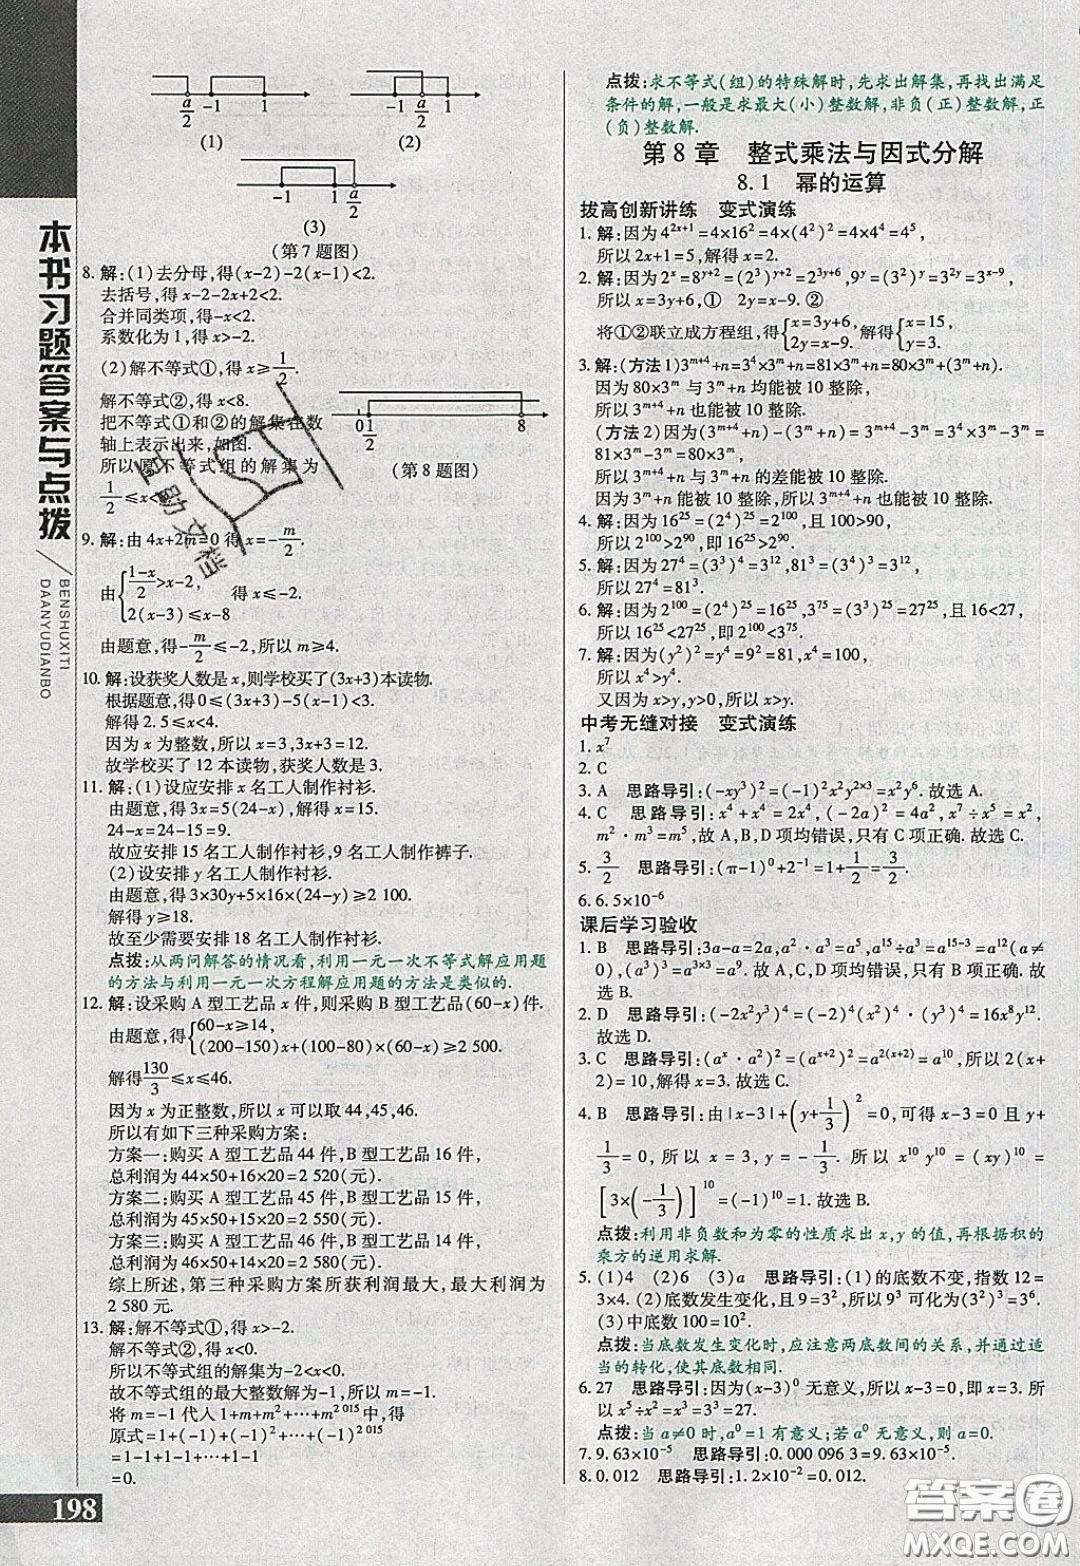 本书习题答案与点拨
BENSHUXITI
DAANYUDIANBO
-1 a/2 1
(1)
-1 a/2 1
(2)
-1 1 a/2
(3)
(第7题图)
8. 解:(1)去分母,得(x-2)-2(x-1)<2.
去括号,得x-2-2x+2<2.
合并同类项,得-x<2.
系数化为1,得x>-2.
(2)解不等式①,得x≥1/2.
解不等式②,得x<8.
把不等式①和②的解集在数
轴上表示出来,如图.
所以原不等式组的解集为
1/2≤x<
0 1/2 8
(第8题图)
9. 解:由4x+2m=0得x=-m/2.
由{(1-x)/2>x-2, 2(x-3)≤x-8 得x≤-2.
由题意,得-m/2≤-2,所以m≥4.
10. 解:设获奖人数是x,则学校买了(3x+3)本读物.
根据题意,得0≤(3x+3)-5(x-1)<3.
解得2.5≤x<4.
因为x为整数,所以x=3,3x+3=12.
故学校买了12本读物,获奖人数是3.
11. 解:(1)设应安排x名工人制作衬衫.
由题意,得3x=5(24-x),解得x=15.
24-x=24-15=9.
故应安排15名工人制作衬衫,9名工人制作裤子.
(2)设安排y名工人制作衬衫.
由题意,得3×30y+5×16×(24-y)≥2 100.
解得y≥18.
故至少需要安排18名工人制作衬衫.
点拨:从两问解答的情况看,利用一元一次不等式解应用题
的方法与利用一元一次方程解应用题的方法是类似的.
12. 解:设采购A型工艺品x件,则采购B型工艺品(60-x)件.
由题意,得{60-x≥14, (200-150)x+(100-80)×(60-x)≥2 500.
解得130/3≤x≤46.
因为x为正整数,所以x可以取44,45,46.
所以有如下三种采购方案:
方案一:购买A型工艺品44件,B型工艺品16件,
总利润为44×50+16×20=2 520(元).
方案二:购买A型工艺品45件,B型工艺品15件,
总利润为45×50+15×20=2 550(元).
方案三:购买A型工艺品46件,B型工艺品14件,
总利润为46×50+14×20=2 580(元).
综上所述,第三种采购方案所获利润最大,最大利润为
2 580元.
13. 解:解不等式①,得x>-2.
解不等式②,得x<0.
所以不等式组的解集为-2<x<0.
故不等式组的最大整数解为-1.
将m=-1代入1+m+m²+…+m²⁰¹⁵中,得
原式=1+(-1)+(-1)²+…+(-1)²⁰¹⁵
=1-1+1-1+…+1-1
=0.
198
点拨:求不等式(组)的特殊解时,先求出解集,再找出满足
条件的解,一般是求最大(小)整数解,非负(正)整数解,正
(负)整数解.
第8章 整式乘法与因式分解
8.1 幂的运算
拔高创新讲练 变式演练
1. 解:因为4²ˣ⁺¹=4×16²=4×(4²)²=4×4⁴=4⁵,
所以2x+1=5,解得x=2.
2. 解:因为2ˣ=8ʸ⁺²=(2³)ʸ⁺²=2³ʸ⁺⁶,9ʸ=(3²)ʸ=3²ʸ=3ˣ⁻⁹
所以x=3y+6,① 2y=x-9. ②
将①②联立成方程组,得{x=3y+6, 2y=x-9. 解得{x=15, y=3.
3. 解:(方法1)3ᵐ⁺⁴+n=3⁴×3ᵐ+n=81×3ᵐ+n=80×3ᵐ+(3ᵐ+n).
因为80×3ᵐ与3ᵐ+n均能被10整除,
所以3ᵐ⁺⁴+n也能被10整除.
(方法2)因为(3ᵐ⁺⁴+n)-(3ᵐ+n)=3ᵐ⁺⁴-3ᵐ=3⁴×3ᵐ-3ᵐ=
81×3ᵐ-3ᵐ=80×3ᵐ,
所以3ᵐ⁺⁴+n与3ᵐ+n的差能被10整除.
因为3ᵐ+n能被10整除,所以3ᵐ⁺⁴+n也能被10整除.
4. 解:因为16²⁵=(2⁴)²⁵=2¹⁰⁰,且100>90,
所以2¹⁰⁰>2⁹⁰,即16²⁵>2⁹⁰.
5. 解:因为27⁴=(3³)⁴=3¹²,81³=(3⁴)³=3¹²,
所以27⁴=81³.
6. 解:因为2¹⁰⁰=(2⁴)²⁵=16²⁵,3⁷⁵=(3³)²⁵=27²⁵,且16<27,
所以16²⁵<27²⁵,即2¹⁰⁰<3⁷⁵.
7. 解:因为(y²)²=y⁴=9²=81,x⁴=100,
所以x⁴>y⁴.
又因为x>y,y>0,所以x>y.
中考无缝对接 变式演练
1. x⁷
2. C
3. A 思路导引:(-xy³)²=(-1)²x²y²ˣ³=x²y⁶.故选A.
4. C 思路导引:x⁴+x⁴=2x⁴,(-2a)²=4a²,x⁷÷x⁵=x²,
m²·m³=m⁵,故A,B,D项均错误,只有C项正确.故选C.
5. 3/2 思路导引:(π-1)⁰+2⁻¹=1+1/2=3/2.
6. 6.5×10⁻⁶
课后学习验收
1. B 思路导引:3a-a=2a,a²·a³=a⁵,a¹⁵÷a³=a¹⁵⁻³=a¹²(a≠
0),(a³)³=a³ˣ³=a⁹.故A,C,D项均错误,只有B项正确.故选B.
2. D 思路导引:(-2x²y³)⁴=(-2)⁴(x²)⁴·(y³)⁴=16x⁸y¹².
故选D.
3. C 思路导引:(aˣ·a²)²=(aˣ⁺²)²=a²⁽ˣ⁺²⁾=a¹⁰,所以2(x+
2)=10,解得x=3.故选C.
4. B 思路导引:由|x-3|+(y+1/3)²=0,可得x-3=0且y+
1/3=0,所以x=3,y=-1/3.所以x¹⁰y¹⁰=(xy)¹⁰=
[3×(-1/3)]¹⁰=(-1)¹⁰=1.故选B.
点拨:利用非负数和为零的性质求出x,y的值,再根据积的
乘方的逆用求解.
5. (1)4 (2)6 (3)a 思路导引:(1)的底数不变,指数12=
3×4.(2)底数发生变化,且3>0,所以9³可化为(3²)³=3⁶.
(3)中底数100=10².
点拨:当底数发生变化时,应注意两底数间的关系,并通过适
当的转化,使其底数相同.
6. 27 思路导引:因为(x-3)⁰无意义,所以x-3=0,即x=3.所
以x⁵÷x²=x³=3³=27.
点拨:当a≠0时,a⁰=1有意义;若a⁰无意义,则a=0.
7. 9.63×10⁻⁵ 思路导引:0.000 096 3=9.63×10⁻⁵.
8. 0.012 思路导引:1.2×10⁻²=0.012.
互助文档
答案圈
MXQE.COM